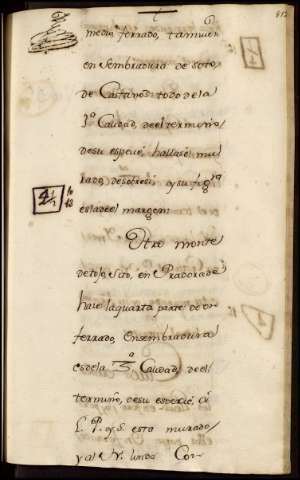 812
medio ferrado, tambien
en Sembradura de Soto
de Castaños todo de la
1ª Calidad, de el termino
de su especie, hallase mu
rado, de sobre si, y su figra
es la de el margen
4½
Otro monte
de tojo, Sito, en Pradorade
hace la quarta parte de un
ferrado, en sembradura
es de la 3ª Calidad, de el
termino, de su especie,
esta murado
y al N. linda Con-